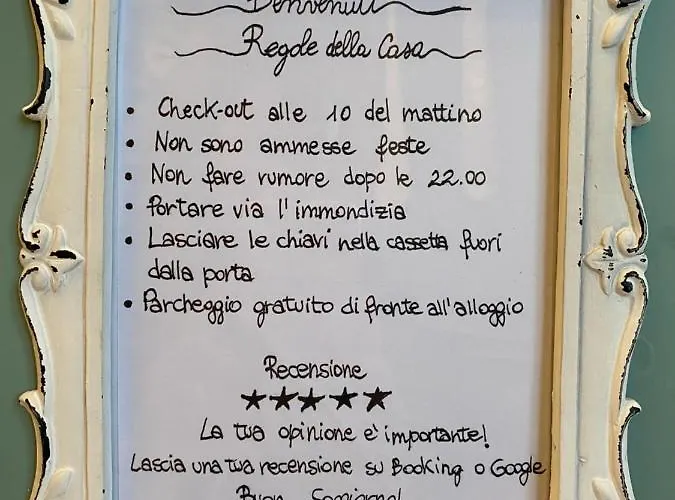 Benvenuti
Regole della Casa
• Check-out alle 10 del mattino
• Non sono ammesse feste
• Non fare rumore dopo le 22.00
• Portare via l'immondizia
• Lasciare le chiavi nella cassetta fuori
dalla porta
• Parcheggio gratuito di fronte all'alloggio
Recensione
★★★★★
La tua opinione è importante!
Lascia una tua recensione su Booking o Google
Buon Soggiorno!